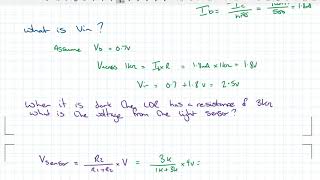 Ib = Ic / hFE = / 500 = 1.8mA
What is Vin?
Assume Vb = 0.7V
Vacross 1kΩ = Ib x R = 1.8mA x 1kΩ = 1.8V
Vin = 0.7 + 1.8V = 2.5V
When it is dark the LDR has a resistance of 3kΩ
what is the voltage from the light sensor?
Vsensor = R2 / R1+R2 x V = 3k / 1k+3k x 9V =